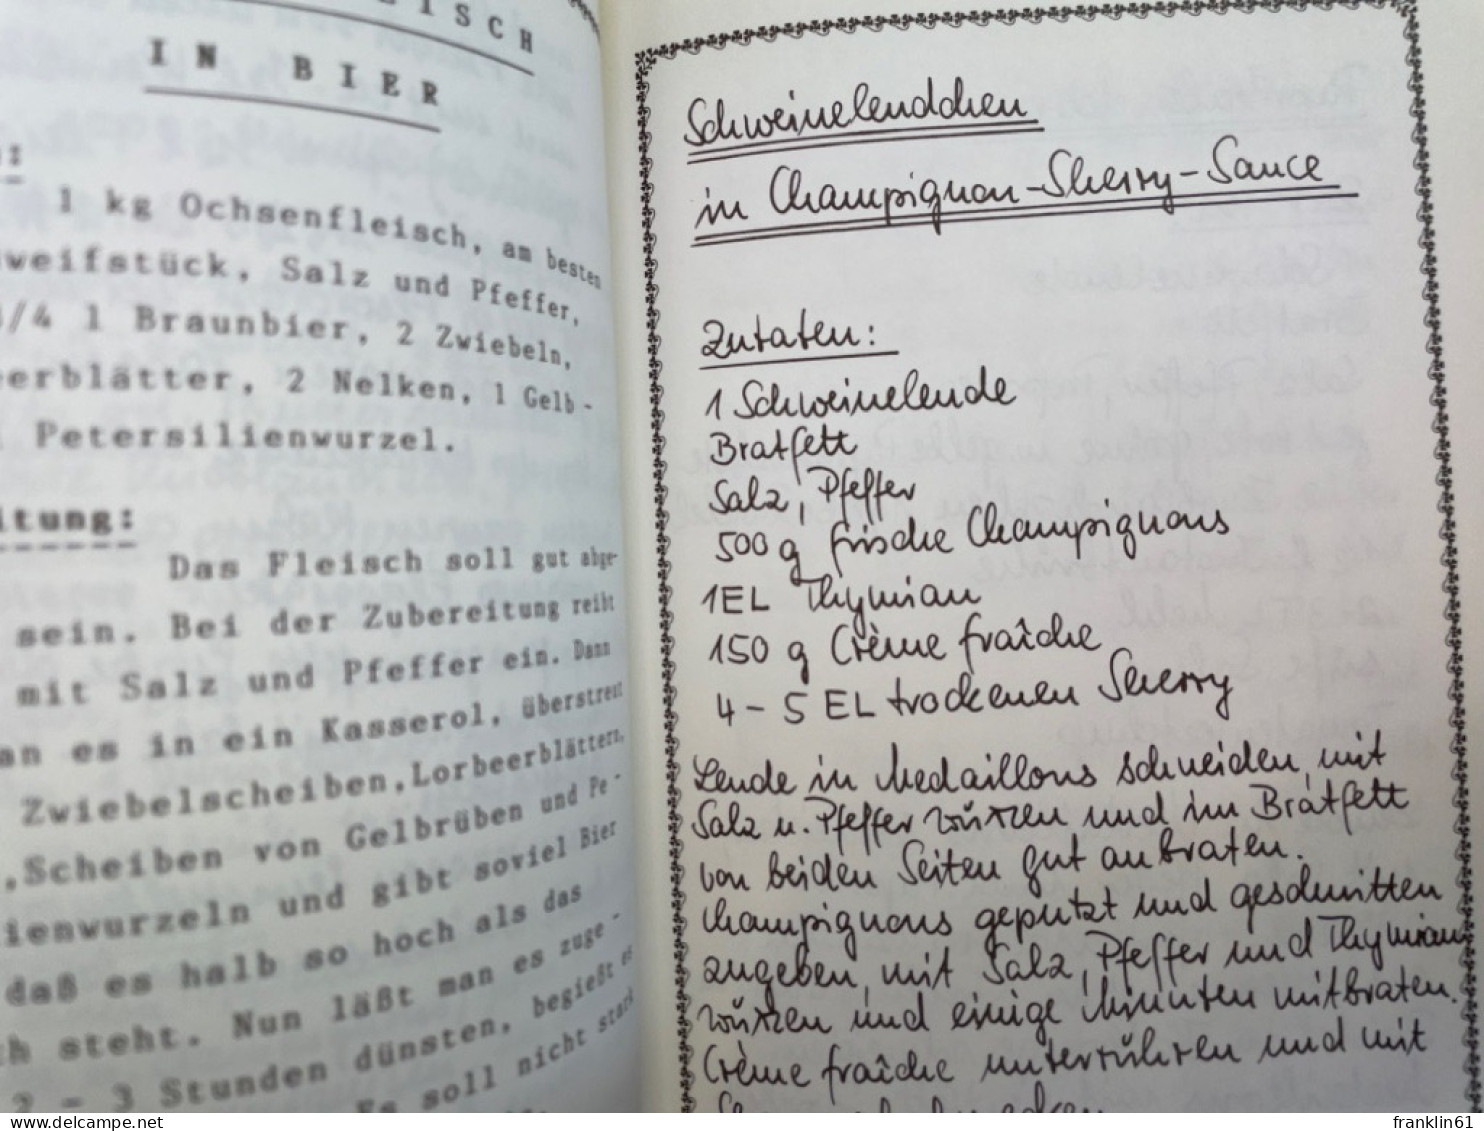 ISCH
IN BIER
:
1 kg Ochsenfleisch, am besten
weifstück, Salz und Pfeffer,
3/4 l Braunbier, 2 Zwiebeln,
eerblätter, 2 Nelken, 1 Gelb-
Petersilienwurzel.
itung:
Das Fleisch soll gut abge-
sein. Bei der Zubereitung reibt
mit Salz und Pfeffer ein. Dann
an es in ein Kasserol, überstreut
Zwiebelscheiben,Lorbeerblättern,
,Scheiben von Gelbrüben und Pe-
ienwurzeln und gibt soviel Bier
daß es halb so hoch als das
ch steht. Nun läßt man es zuge-
2 - 3 Stunden dünsten, begießt es
Es soll nicht stark
Schweinelendchen
in Champignon-Sherry-Sauce
Zutaten:
1 Schweinelende
Bratfett
Salz, Pfeffer
500 g frische Champignons
1EL Thymian
150 g Crème fraîche
4 - 5 EL trockenen Sherry
Lende in Medaillons schneiden, mit
Salz u. Pfeffer würzen und im Bratfett
von beiden Seiten gut anbraten.
Champignons geputzt und geschnitten
zugeben, mit Salz, Pfeffer und Thymian
würzen und einige Minuten mitbraten.
Crème fraîche unterrühren und mit
www.delcampe.net
franklin61